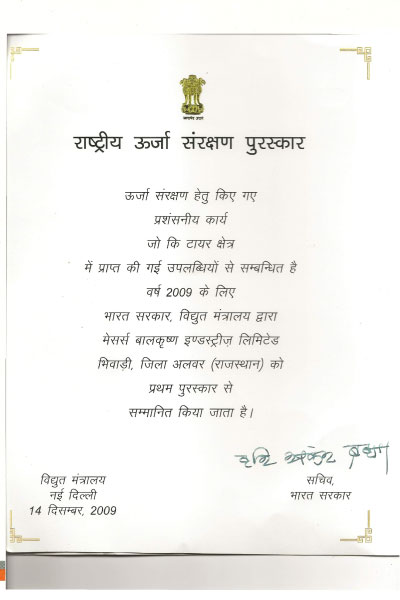 राष्ट्रीय ऊर्जा संरक्षण पुरस्कार
ऊर्जा संरक्षण हेतु किए गए
प्रशंसनीय कार्य
जो कि टायर क्षेत्र
में प्राप्त की गई उपलब्धियों से सम्बन्धित है
वर्ष 2009 के लिए
भारत सरकार, विद्युत मंत्रालय द्वारा
मेसर्स बालकृष्ण इण्डस्ट्रीज़ लिमिटेड
भिवाड़ी, जिला अलवर (राजस्थान) को
प्रथम पुरस्कार से
सम्मानित किया जाता है।
विद्युत मंत्रालय
नई दिल्ली
14 दिसम्बर, 2009
सचिव,
भारत सरकार